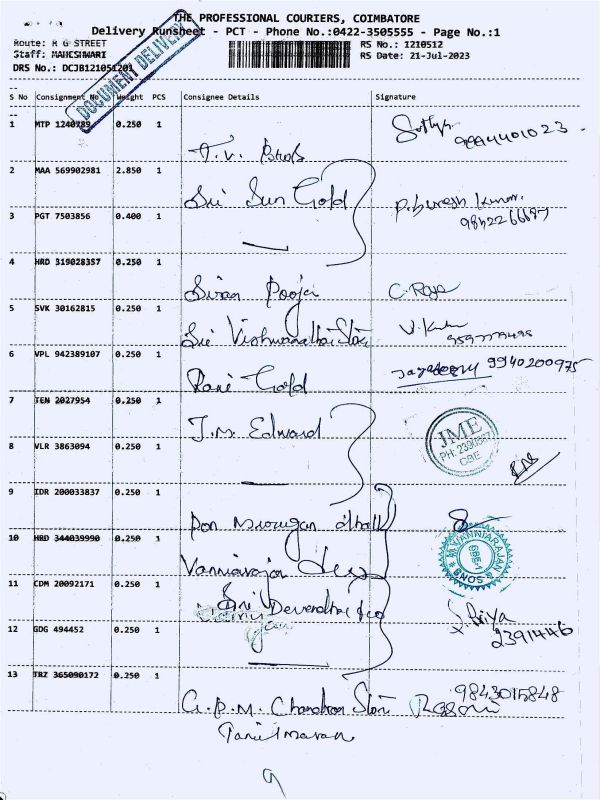 THE PROFESSIONAL COURIERS, COIMBATORE
Delivery Runsheet - PCT - Phone No.:0422-3505555 - Page No.:1
Route: R G STREET
RS No.: 1210512
Staff: MAHESHWARI
RS Date: 21-Jul-2023
DRS No.: DCJB121051201
DOCUMENT DELIVERY
S No Consignment No Weight PCS Consignee Details Signature
1 MTP 1240789 0.250 1
T.V. Bros
9994401023
2 MAA 569902981 2.850 1
Sri Sun Gold
P. Suresh Kumar.
9842266687
3 PGT 7503856 0.400 1
4 HRD 319028357 0.250 1
Sivan Pooja
C. Raja
5 SVK 30162815 0.250 1
Sri Vishwanathai Store
6 VPL 942389107 0.250 1
Rani Gold
9940200975
7 TEN 2027954 0.250 1
J.M. Edward
JME
CBE
8 VLR 3863094 0.250 1
9 IDR 200033837 0.250 1
Pon Murugan
10 HRD 344039990 0.250 1
VANNIARAJAN
& SONS
CBE-1
11 CDM 20092171 0.250 1
Sri Devendra & co
S. Priya
2391446
12 GDG 494452 0.250 1
13 TRZ 365090172 0.250 1
G.P.M. Chandran Store
9843015848
9